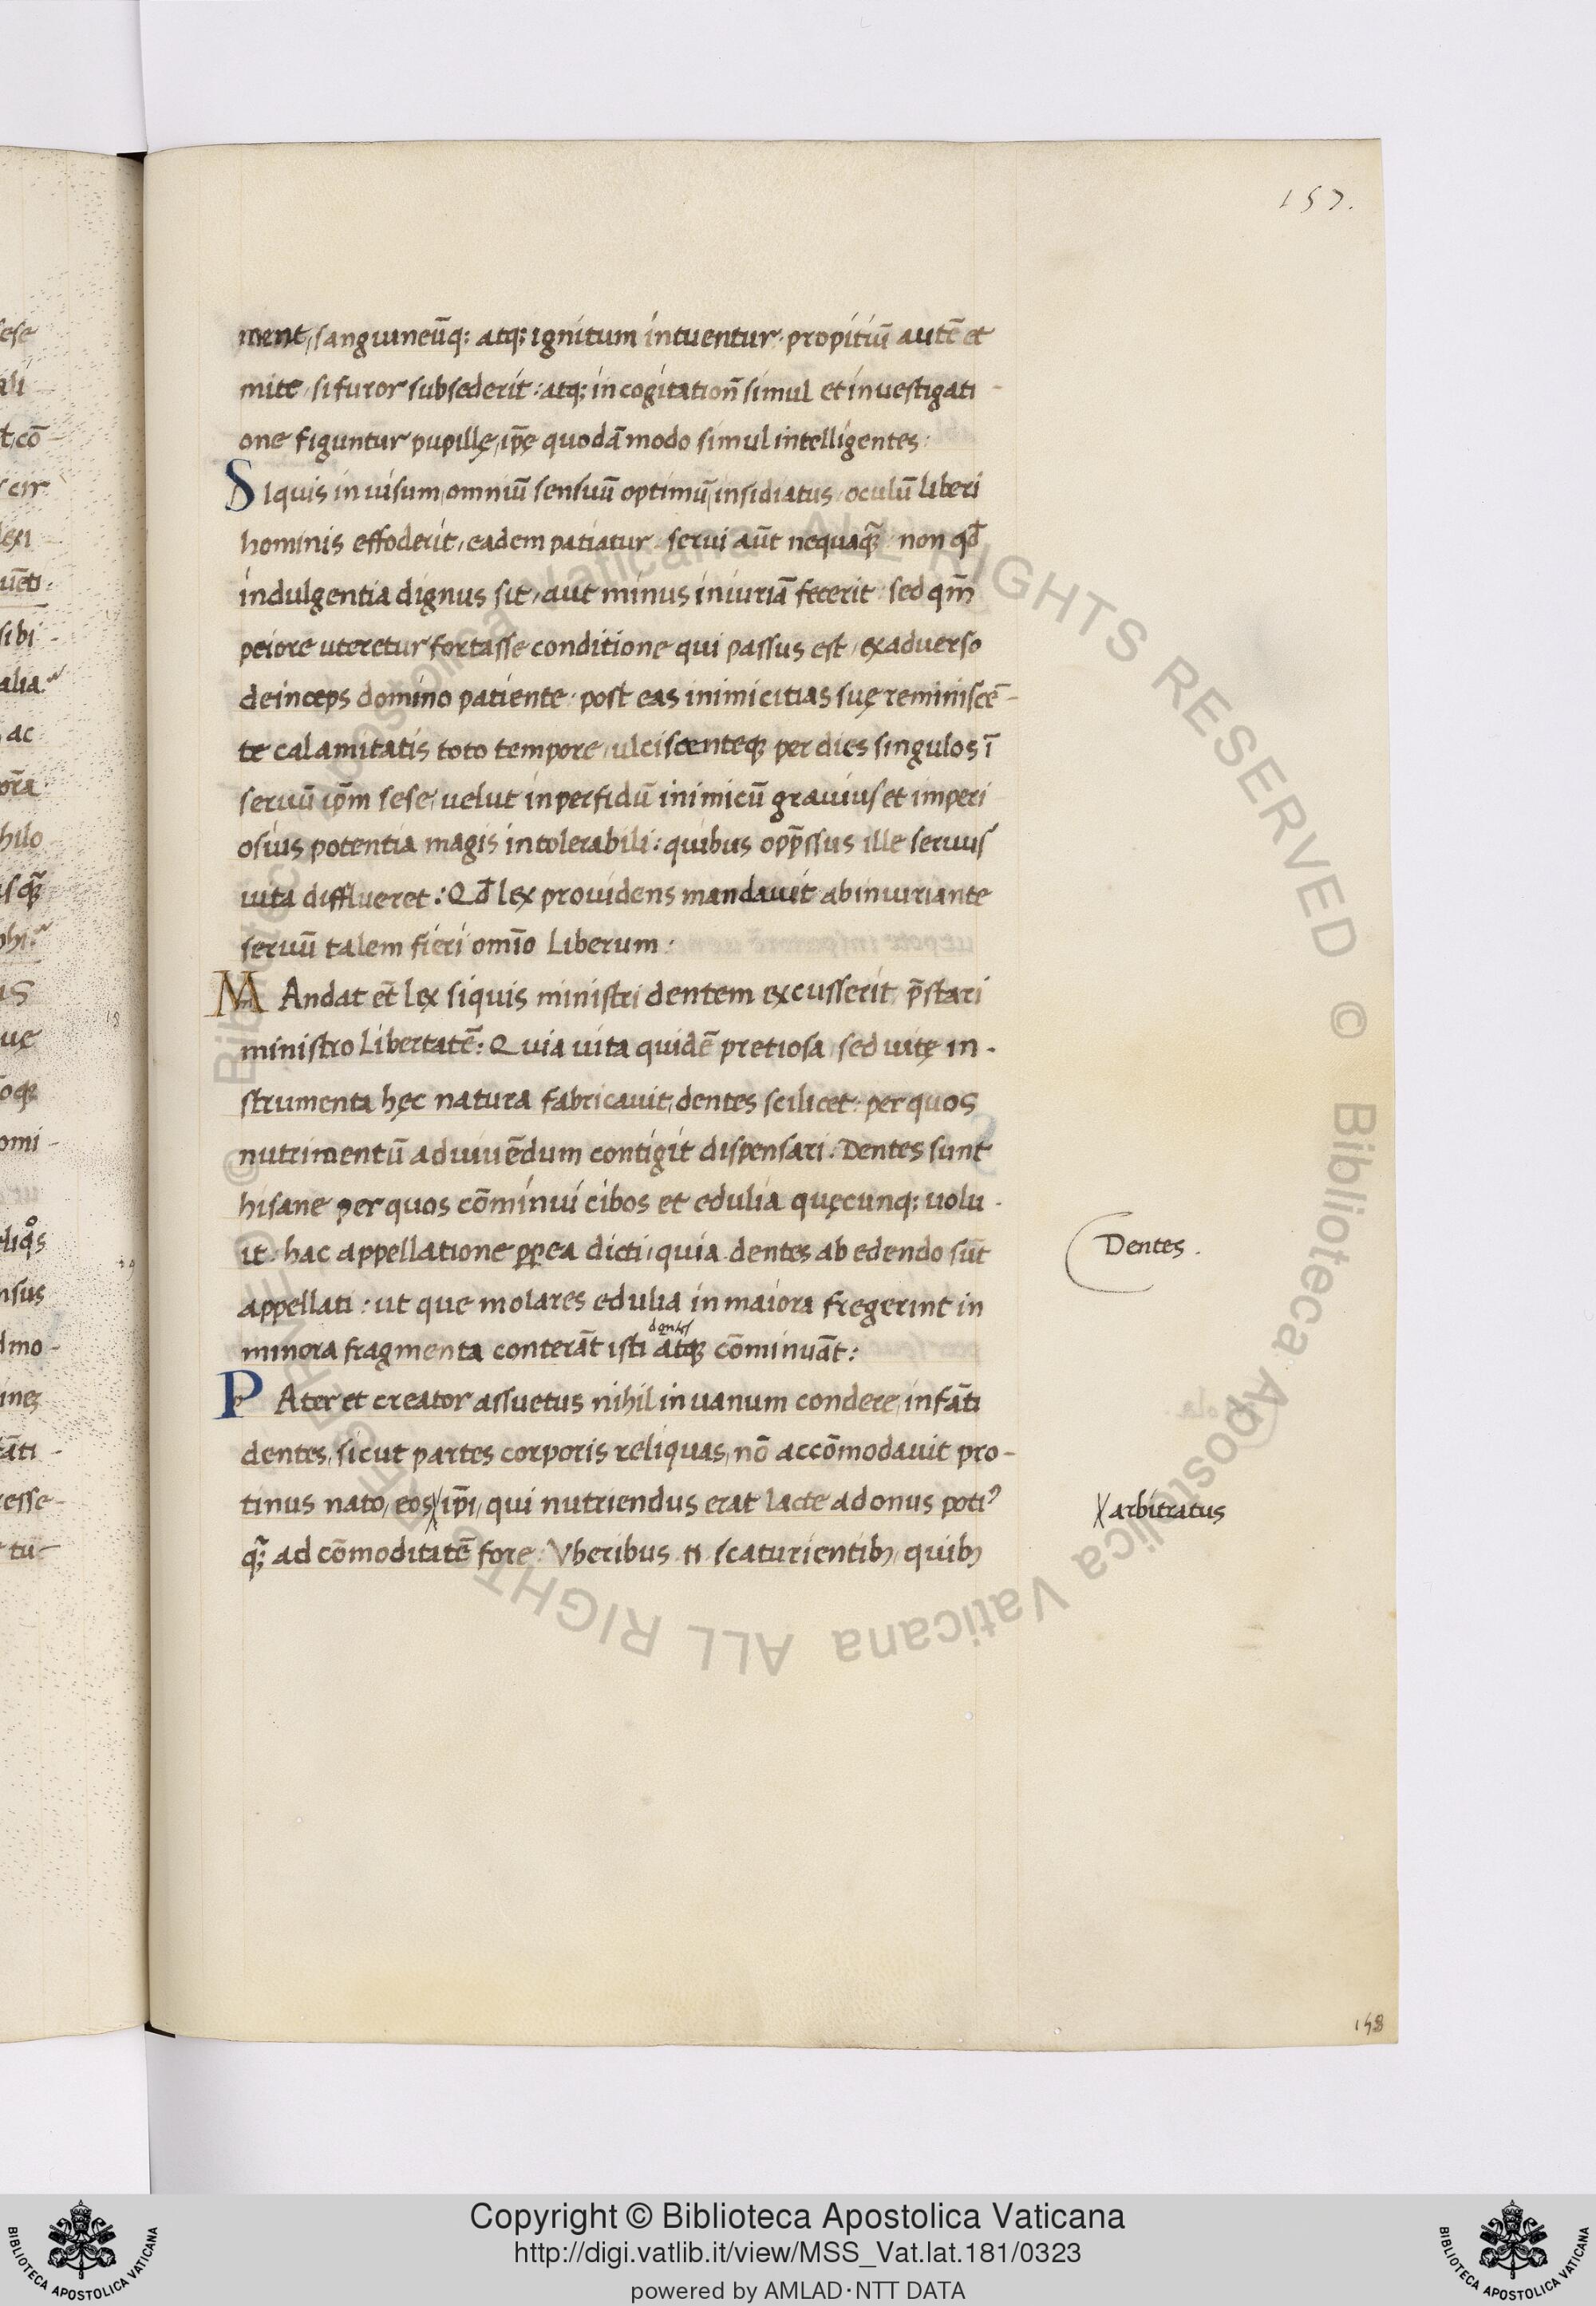 157.
ment, sanguineūq: atq: ignitum intuentur. propitiū autē et
mite, si furor subsederit: atq: in cogitationē simul et inuestigati-
one figuntur pupillę, ip̄ę quodā modo simul intelligentes:
SIquis in uisum, omniū sensuū optimū, insidiatus, oculū liberi
hominis effoderit, eadem patiatur. serui aūt nequaq̄. non qđ
indulgentia dignus sit, aut minus iniuriā fecerit: sed qm̄
peiore uteretur fortasse conditione qui passus est, ex aduerso
deinceps domino patiente. post eas inimicitias suę reminiscē-
te calamitatis toto tempore, ulciscenteq; per dies singulos ī
seruū ip̄m sese, uelut in perfidū inimicū grauius et imperi
osius potentia magis intolerabili: quibus opp̄ssus ille seruus
uita difflueret: Qđ lex prouidens mandauit ab iniuriante
seruū talem fieri omīo liberum:
MAndat et̄ lex siquis ministri dentem excusserit, p̄stari
ministro libertatē: Quia uita quidē pretiosa, sed uitę in-
strumenta hęc natura fabricauit, dentes scilicet: per quos
nutrimentū ad uiuēdum contigit dispensari. Dentes sunt
hi sane per quos cōminui cibos et edulia quęcunq: uolu-
it. hac appellatione ꝓpea dicti, quia dentes ab edendo sūt
appellati: ut que molares edulia in maiora fregerint in
dentes
minora fragmenta conterāt isti atq; cōminuāt:
Dentes.
PAter et creator assuetus nihil in uanum condere, infāti
dentes, sicut partes corporis reliquas, nō accōmodauit pro-
tinus nato, eos ip̄i, qui nutriendus erat lacte ad onus poti⁹
arbitratus
q̄; ad cōmoditatē fore. Vberibus .n. scaturientib; quib;
158
Copyright © Biblioteca Apostolica Vaticana
http://digi.vatlib.it/view/MSS_Vat.lat.181/0323
powered by AMLAD·NTT DATA